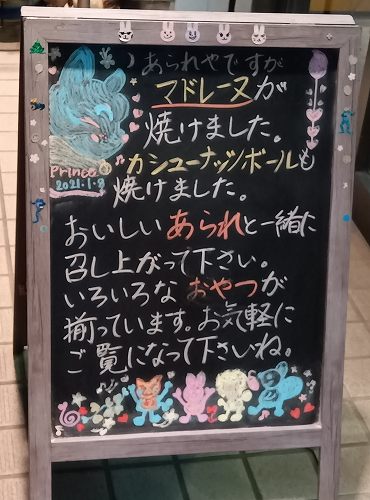 あられやですが
マドレーヌが
焼けました。
カシューナッツボールも
焼けました。
おいしいあられと一緒に
召し上がって下さい。
いろいろなおやつが
揃っています。お気軽に
ご覧になって下さいね。
Prince
2021.1.8